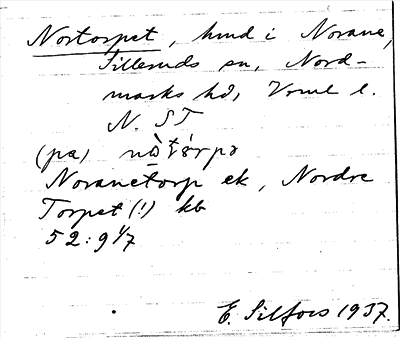 Nortorpet, hmd i Norane,
Silleruds sn, Nord-
marks hd, Vrml l.
N. ST
(pa) nòtǿrpə
Noranetorp ek, Nordre
Torpet (!) kb
52:9 1/7
E. Silfors 1937.